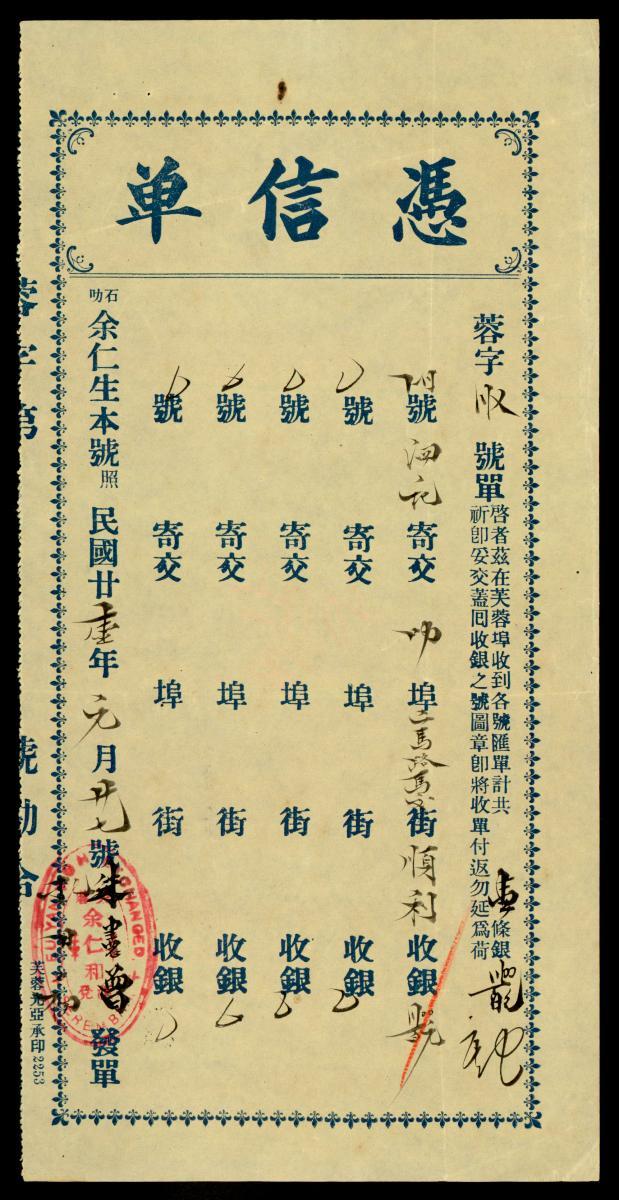 憑信单
蓉字 號單
啓者茲在芙蓉埠收到各號匯單計共 壹 條銀
祈卽妥交蓋囘收銀之號圖章卽將收單付返勿延爲荷
號 洄記 寄交 叻 埠 馬路 街 順利 收銀
號 寄交 埠 街 收銀
號 寄交 埠 街 收銀
號 寄交 埠 街 收銀
號 寄交 埠 街 收銀
石叻 余仁生本號照 民國廿壹年元月廿七號 朱 曾 發單
余仁和
EXCHANGED
SEREMBAN
芙蓉光亞承印2253
蓉字第 號勘合